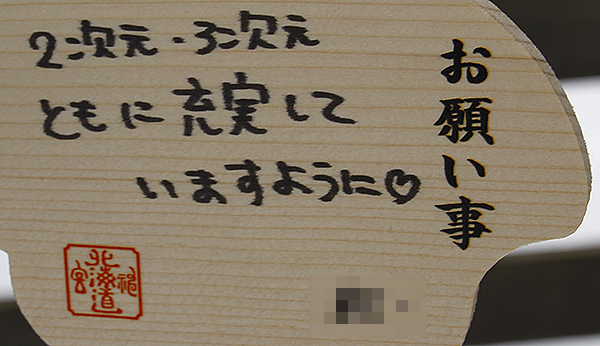 お願い事
2次元・3次元
ともに充実して
いますように♡
北海道
神宮